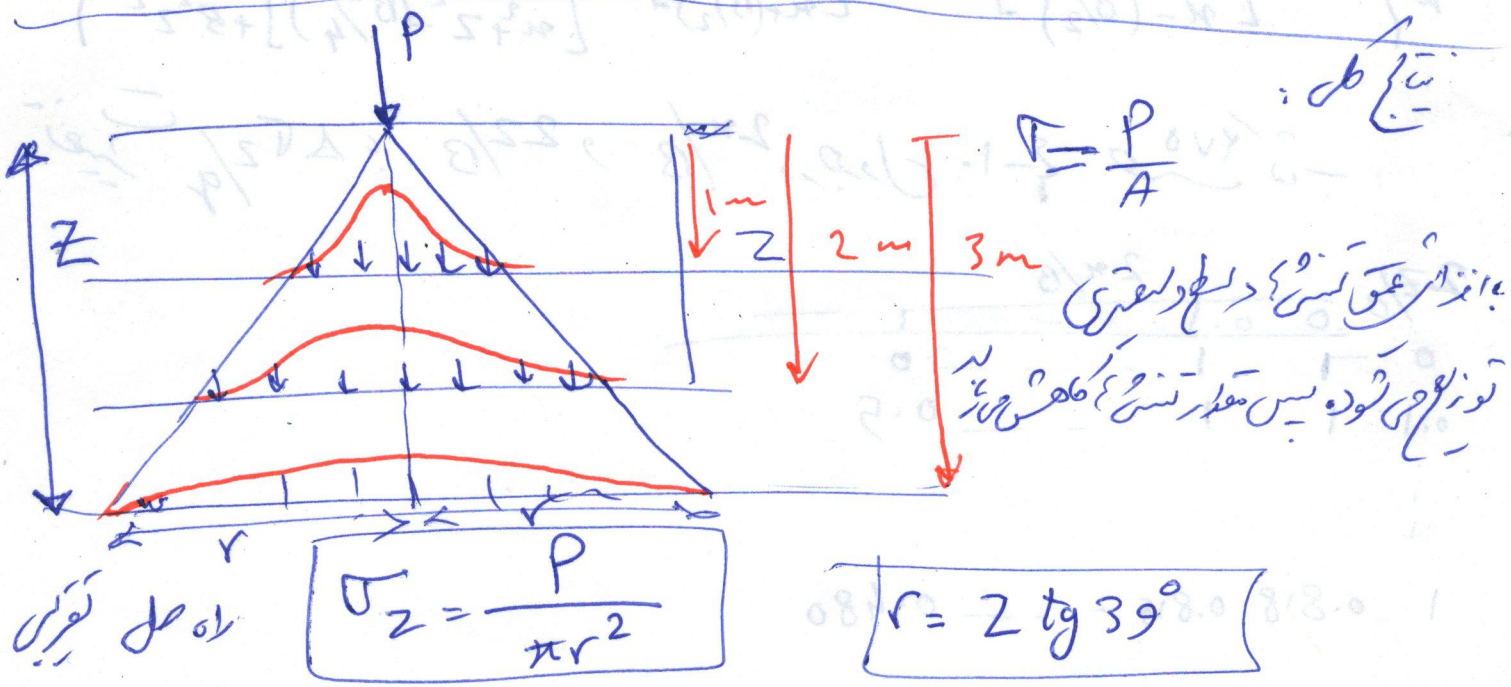 P
نتایج کلی:
σ = P / A
Z
1 m
Z
2 m
3 m
با افزایش عمق تنش‌ها در سطح وسیعتری
توزیع می‌شود پس مقدار تنش‌ها کاهش می‌یابد
r
r
راه حل تقریبی
σz = P / πr²
r = Z tg 39°